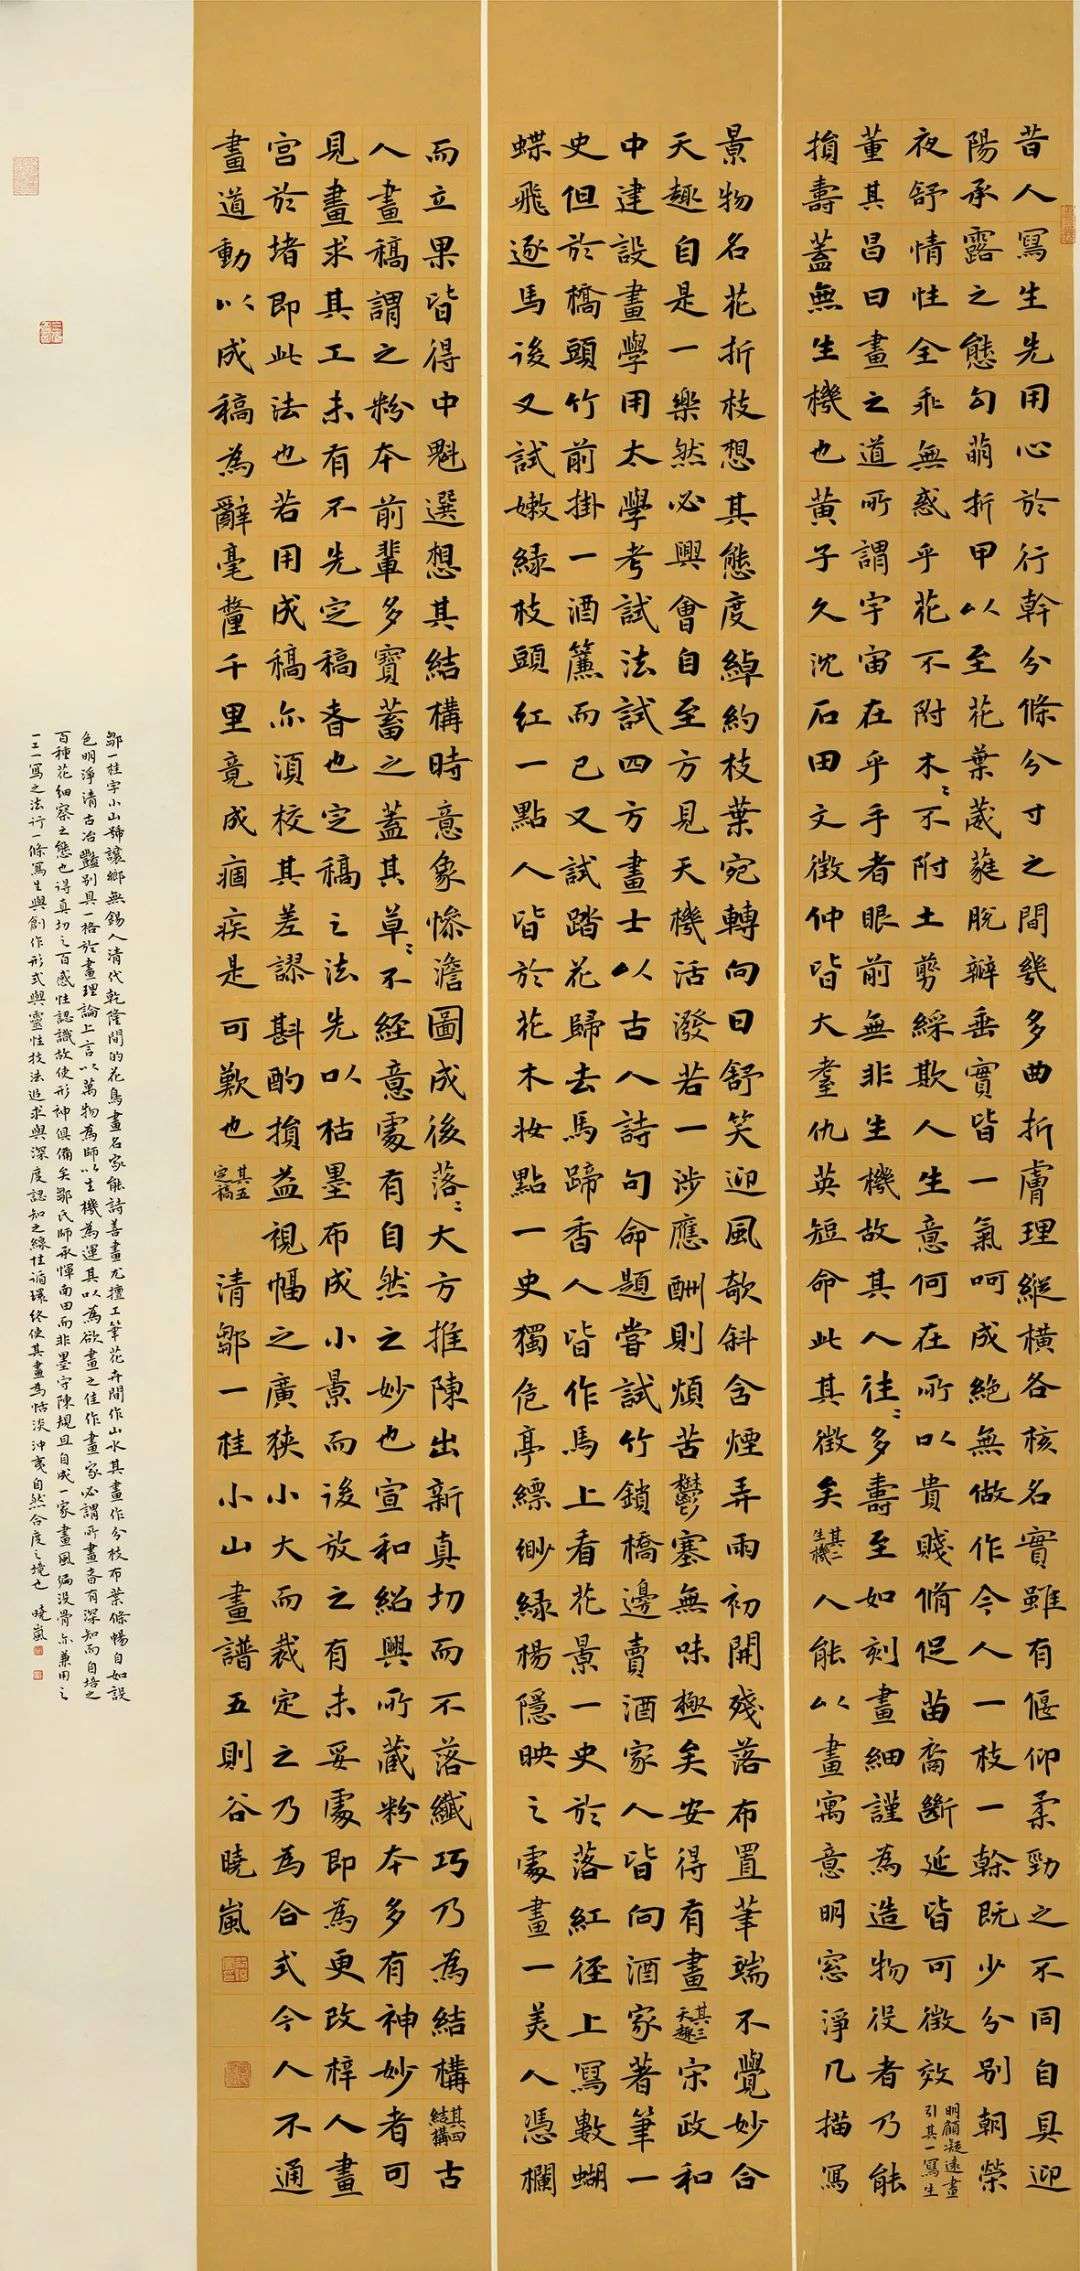 昔人寫生先用心於行幹分條分寸之間幾多曲折膚理縱橫各核名實雖有偃仰柔勁之不同自具迎
陽承露之態句萌折甲以至花葉葳蕤脫瓣垂實皆一氣呵成絕無做作今人一枝一幹既少分別朝榮
夜舒情性全乖無惑乎花不附木〻不附土剪綵欺人生意何在所以貴賤脩促苗裔斷延皆可徵效
明顧凝遠畫
引其一寫生
董其昌曰畫之道所謂宇宙在乎手者眼前無非生機故其人往〻多壽至如刻畫細謹為造物役者乃能
損壽蓋無生機也黃子久沈石田文徵仲皆大耋仇英短命此其徵矣
其二
生機
人能以畫寓意明窓淨几描寫
景物名花折枝想其態度綽約枝葉宛轉向日舒笑迎風欹斜含煙弄雨初開殘落布置筆端不覺妙合
天趣自是一樂然必興會自至方見天機活潑若一涉應酬則煩苦鬱塞無味極矣安得有畫
其三
天趣
宋政和
中建設畫學用太學考試法試四方畫士以古人詩句命題嘗試竹鎖橋邊賣酒家人皆向酒家著筆一
史但於橋頭竹前掛一酒簾而已又試踏花歸去馬蹄香人皆作馬上看花景一史於落紅徑上寫數蝴
蝶飛逐馬後又試嫩綠枝頭紅一點人皆於花木妝點一史獨危亭縹緲綠楊隱映之處畫一美人憑欄
而立果皆得中魁選想其結構時意象慘澹圖成後落〻大方推陳出新真切而不落纖巧乃為結構
其四
結構
古
人畫稿謂之粉本前輩多寶蓄之蓋其草〻不經意處有自然之妙也宣和紹興所藏粉本多有神妙者可
見畫求其工未有不先定稿者也定稿之法先以枯墨布成小景而後放之有未妥處即為更改梓人畫
宮於堵即此法也若用成稿亦須校其差謬斟酌損益視幅之廣狹小大而裁定之乃為合式今人不通
畫道動以成稿為辭毫釐千里竟成痼疾是可歎也
其五
定稿
清鄒一桂小山畫譜五則谷曉嵐
鄒一桂字小山號讓鄉無錫人清代乾隆間的花鳥畫名家能詩善畫尤擅工筆花卉間作山水其畫作分枝布葉條暢自如設
色明淨清古冶豔別具一格於畫理論上言以萬物為師以生機為運其以為欲畫之佳作畫家必謂所畫者有深知而自培之
百種花細察之態也得真切之百感性認識故使形神俱備矣鄒氏師承惲南田而非墨守陳規且自成一家畫風偏沒骨亦兼用之
一工一寫之法行一條寫生與創作形式與靈性技法追求與深度認知之綠性循環終使其畫為恬淡沖夷自然合度之境也 曉嵐